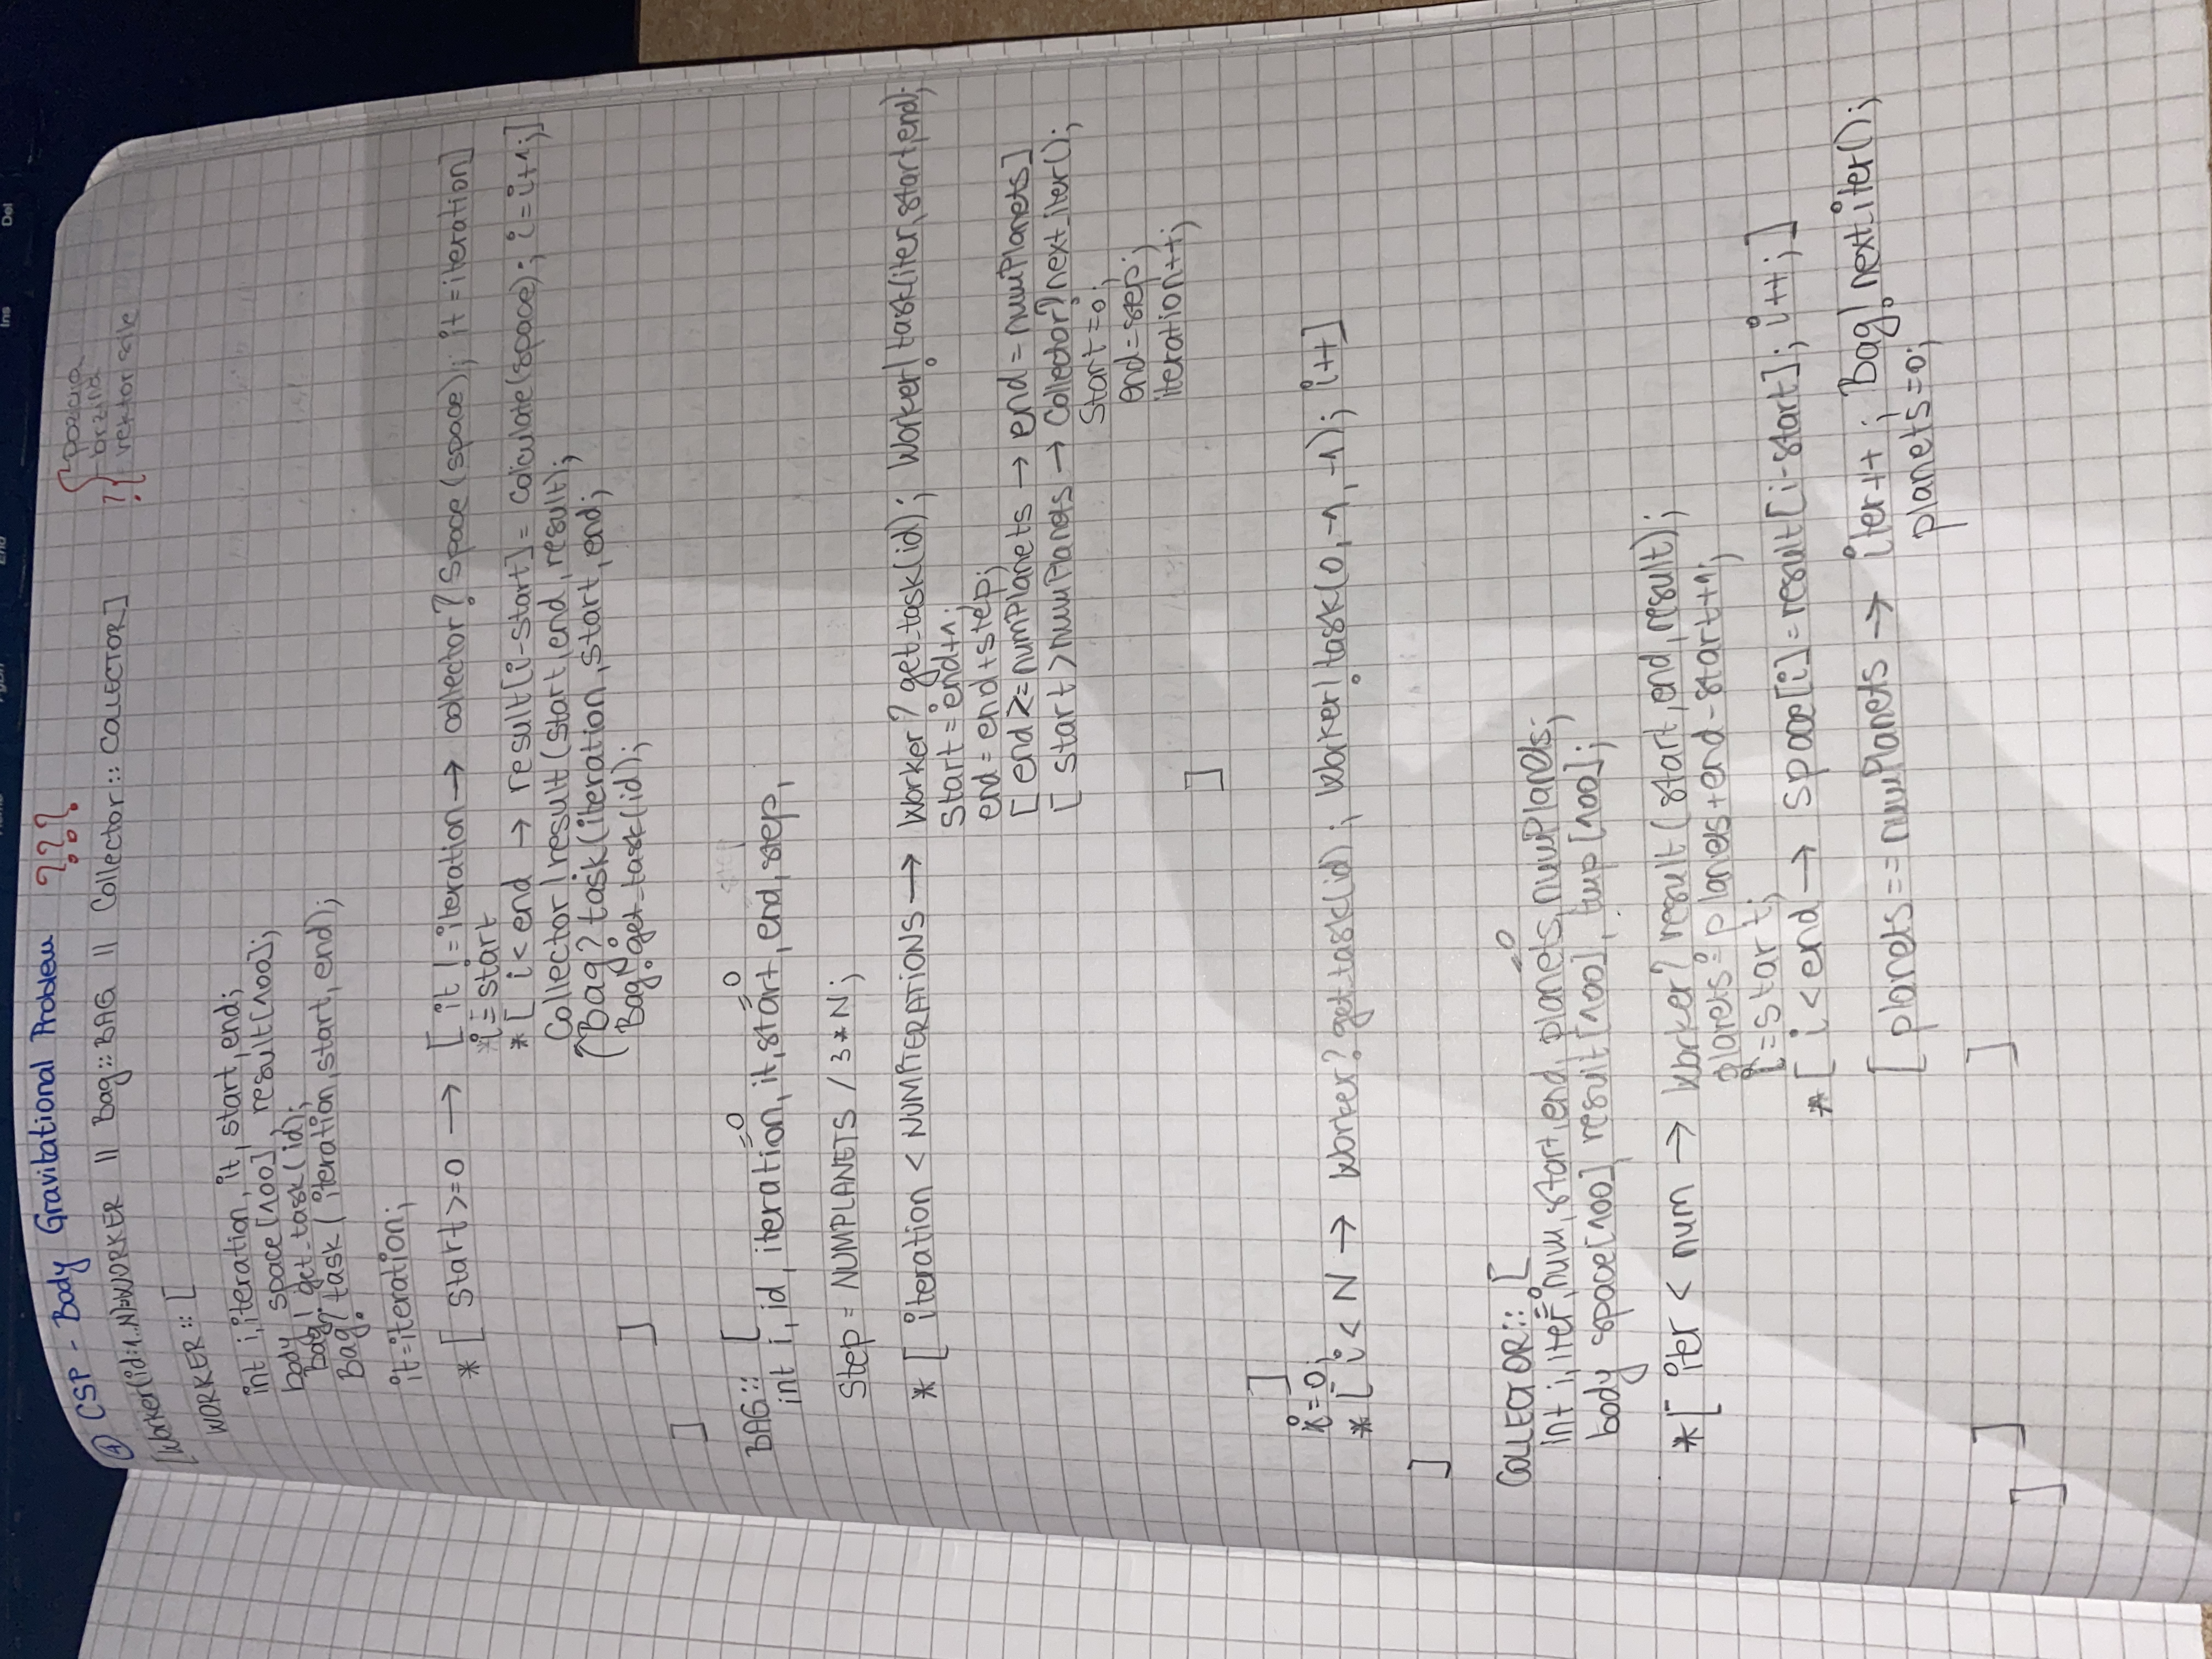 Ins Del
④ CSP - Body Gravitational Problem ???
pozicija
brzina
? vektor sile
[Worker(id:1..N)::WORKER || Bag::BAG || Collector::COLLECTOR]
WORKER:: [
int i, iteration, it, start, end;
body space[100], result[100];
Bag! get_task(id);
Bag? task(iteration, start, end);
it=iteration;
*[ start>=0 → [ it != iteration → collector? Space(space); it=iteration]
i=start
*[ i<end → result[i-start] = Calculate(space); i=i+1;]
Collector!result(start,end,result);
Bag? task(iteration, start, end;
Bag! get_task(id);
]
]
BAG:: [
=0 =0
int i, id, iteration, it, start, end, step,
Step = NUMPLANETS / 3*N;
*[ iteration < NUMITERATIONS → Worker? get_task(id); Worker! task(iter, start, end);
start = end+1;
end = end+step;
[ end >= numPlanets → end = numPlanets]
[ start > numPlanets → Collector? next_iter();
Start=0;
end=step;
iteration++;
]
]
i=0;
*[ i < N → Worker? get_task(id); Worker! task(0, -1, -1); i++]
]
COLLECTOR:: [
=0 =0
int i, iter, num, start, end, planets, numPlanets;
body space[100], result[100], tmp[100];
*[ iter < num → Worker? result(start, end, result);
planets = planets + end - start + 1;
i=start;
*[ i<end → space[i] = result[i-start]; i++;]
[ planets == numPlanets → iter++; Bag! next_iter();
planets=0;
]
]
]